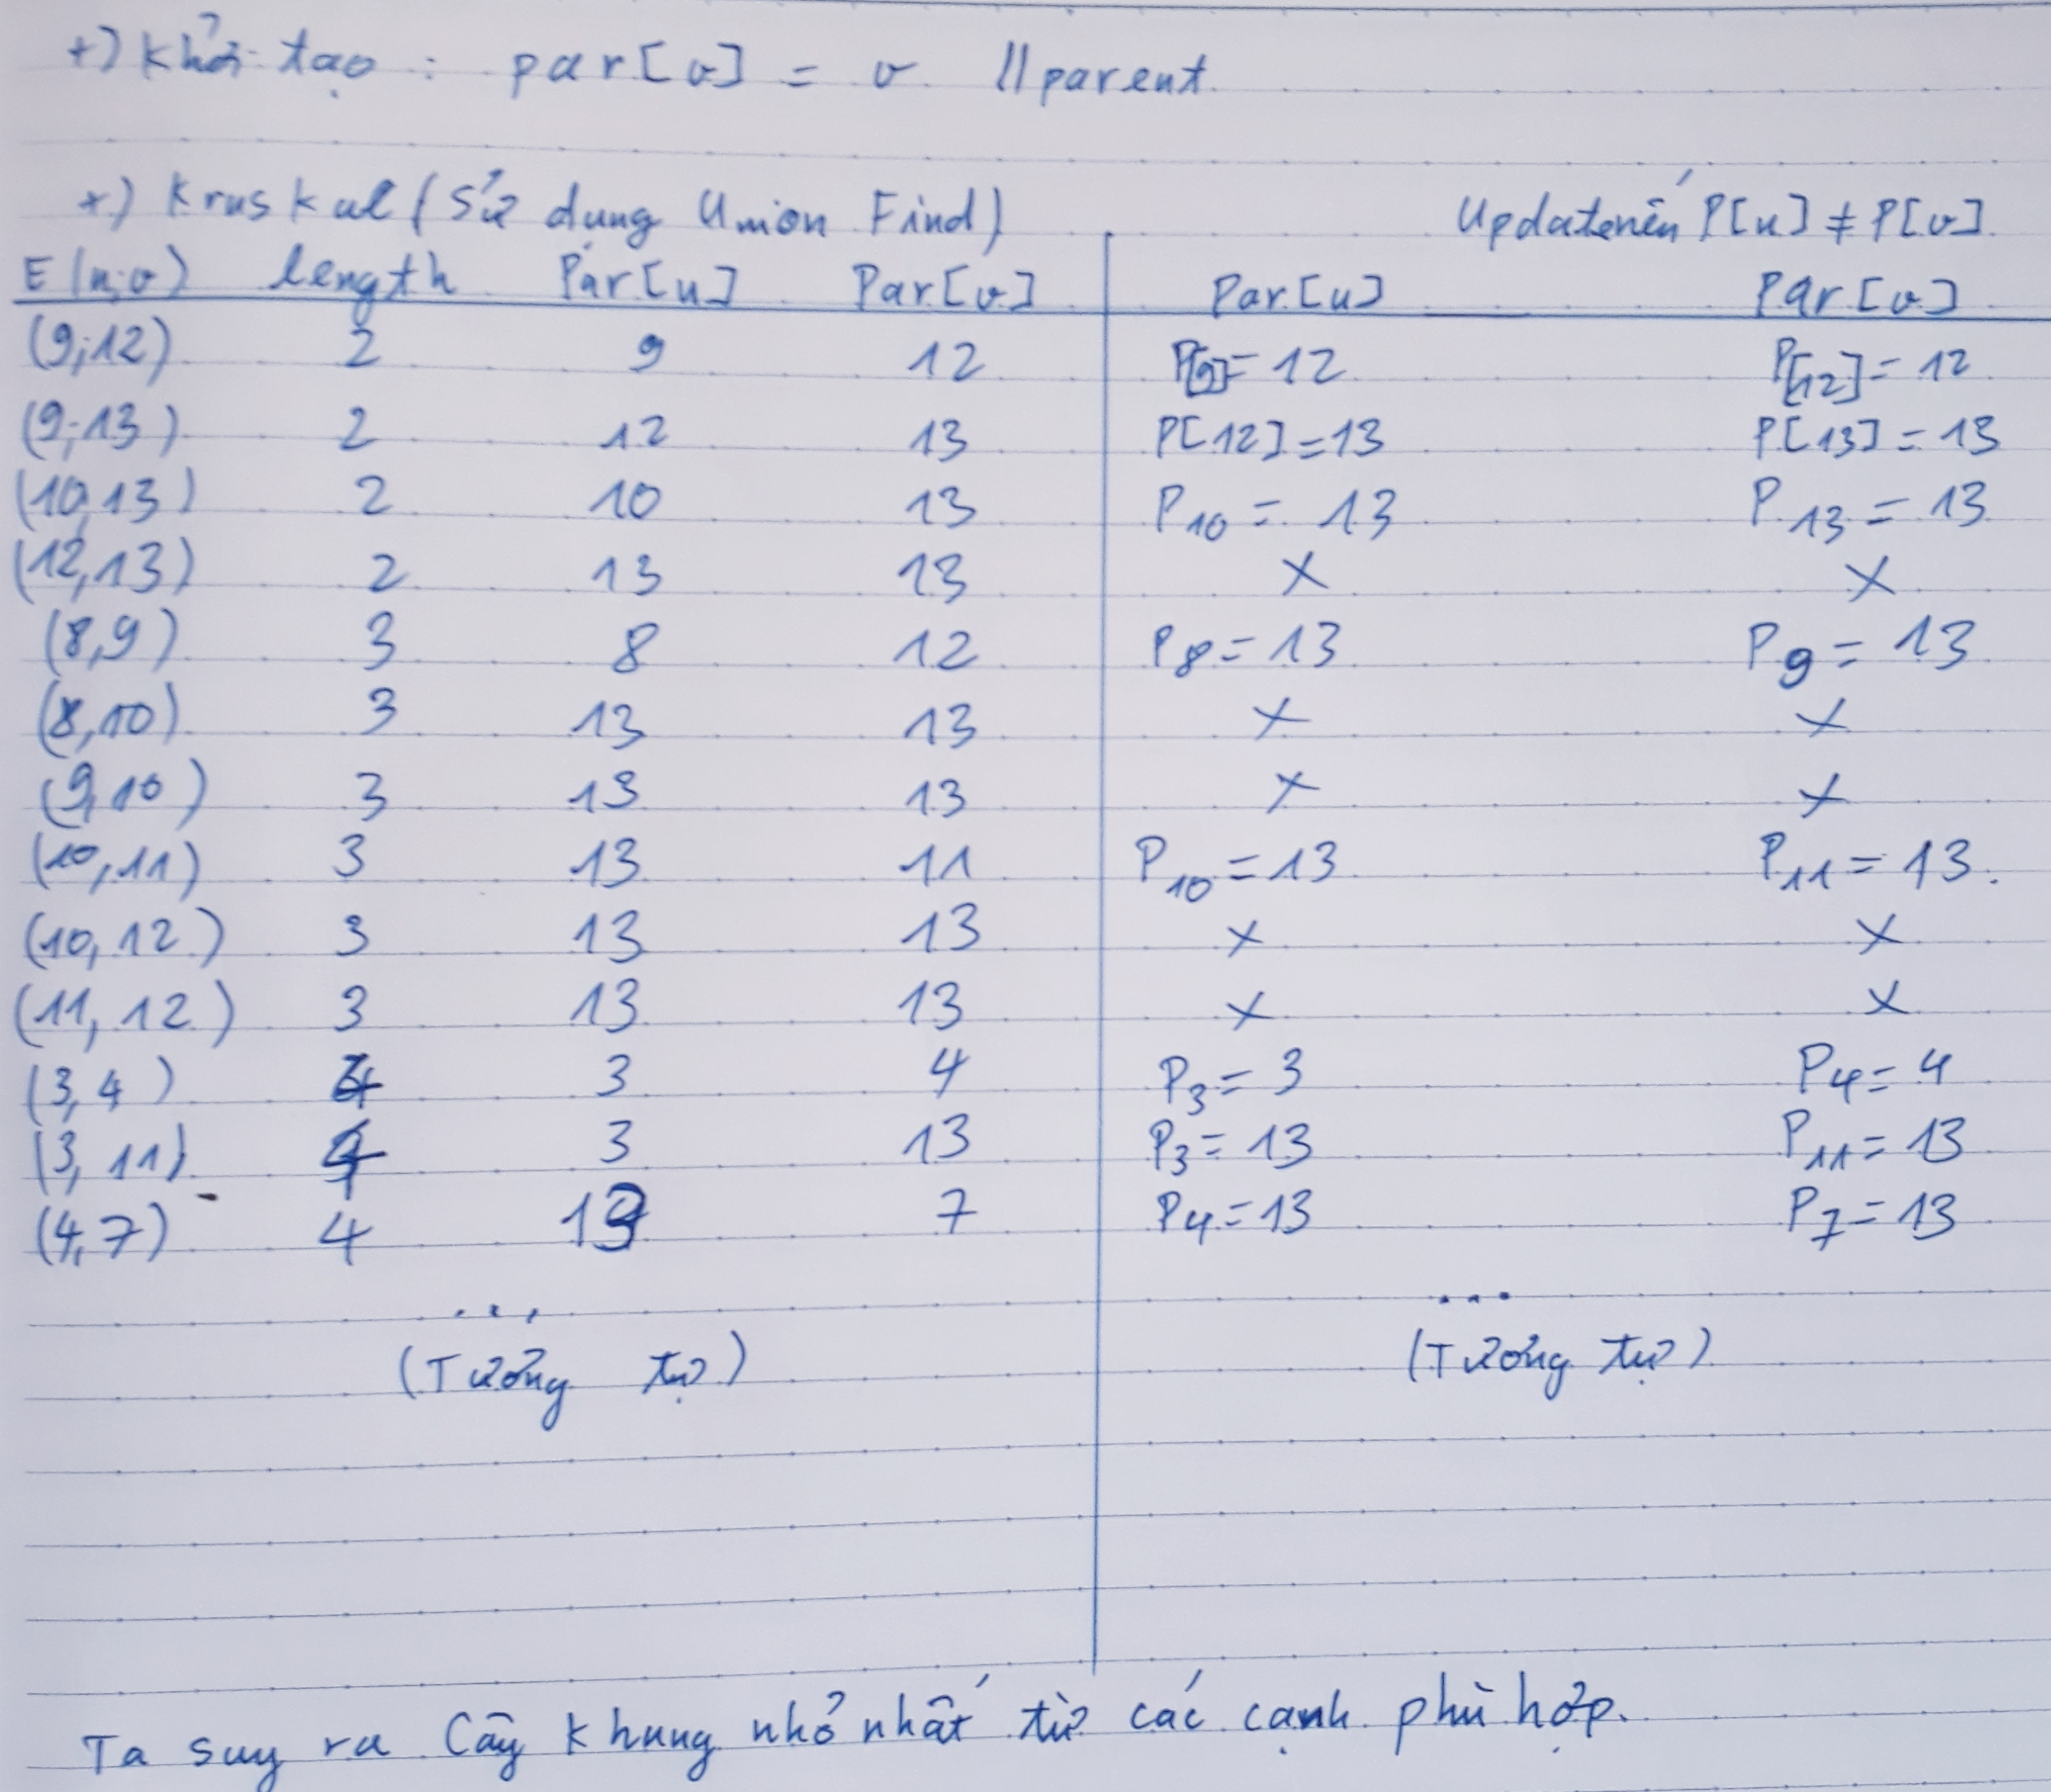 +) Khởi tạo : par[v] = v // parent
+) Kruskal (Sử dụng Union Find) Update nếu P[u] ≠ P[v]
E(u,v) length Par[u] Par[v] Par[u] Par[v]
(9;12) 2 9 12 P[9] = 12 P[12] = 12
(9;13) 2 12 13 P[12] = 13 P[13] = 13
(10,13) 2 10 13 P10 = 13 P13 = 13
(12,13) 2 13 13 x x
(8,9) 3 8 12 P8 = 13 P9 = 13
(8,10) 3 13 13 x x
(9,10) 3 13 13 x x
(10,11) 3 13 11 P10 = 13 P11 = 13.
(10,12) 3 13 13 x x
(11,12) 3 13 13 x x
(3,4) 4 3 4 P3 = 3 P4 = 4
(3,11) 4 3 13 P3 = 13 P11 = 13
(4,7) 4 13 7 P4 = 13 P7 = 13
... ...
(Tưởng tự) (Tưởng tự)
Ta suy ra Cây khung nhỏ nhất từ các cạnh phù hợp.